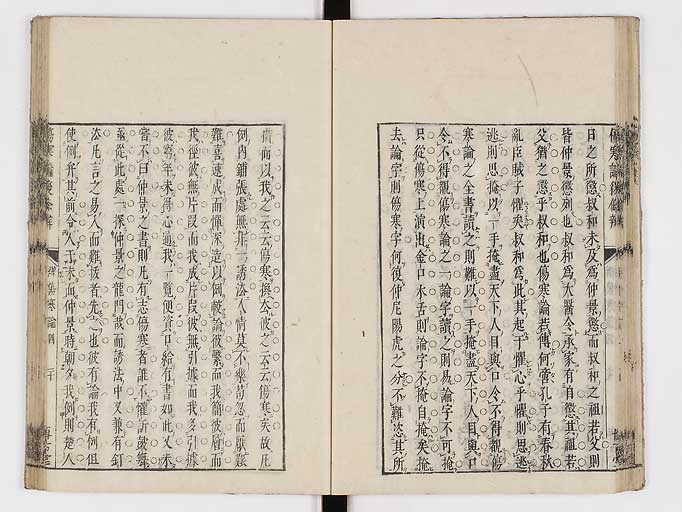 日之所懲叔和未及為仲景懲而叔和之祖若父則
皆仲景懲列也叔和為太醫令承家有自懲其祖若
父猶之懲乎叔和也傷寒論若傳何啻孔子有春秋
亂臣賊子懼矣叔和為此其起于懼心乎懼則思逃
逃則思掩以一手掩盡天下人目與口令不得覩傷
寒論之全書讀之則難以一手掩盡天下人目與口
令不得覩傷寒論之一論字讀之則易論字不可掩
只從傷寒上演出金口木舌則論字不掩自掩矣掩
去論字則傷寒字何復仲尼陽虎之分不難恣其所
僭而以我之云云傷寒換公彼之云云傷寒矣故庄
例內鋪張處無非一誘法人情莫不樂苟忽而厭繁
難喜速成而憚深造以例較論彼繁而我簡彼層而
我徑彼無片段而我成片段彼無引據而我多引據
彼窮年未得心通我一覽便資口給有書如此又未
嘗不曰仲景之書則凡有志傷寒者誰不懽訢鼓舞
亟從此處一探仲景之龍門哉而誘法中又兼有釘
法凡言之易入而難拔者先入也彼有論我有例但
使例弁其前令人于未面仲景時朝夕我例則楚人
傷寒論後條辨
辨傷寒論四